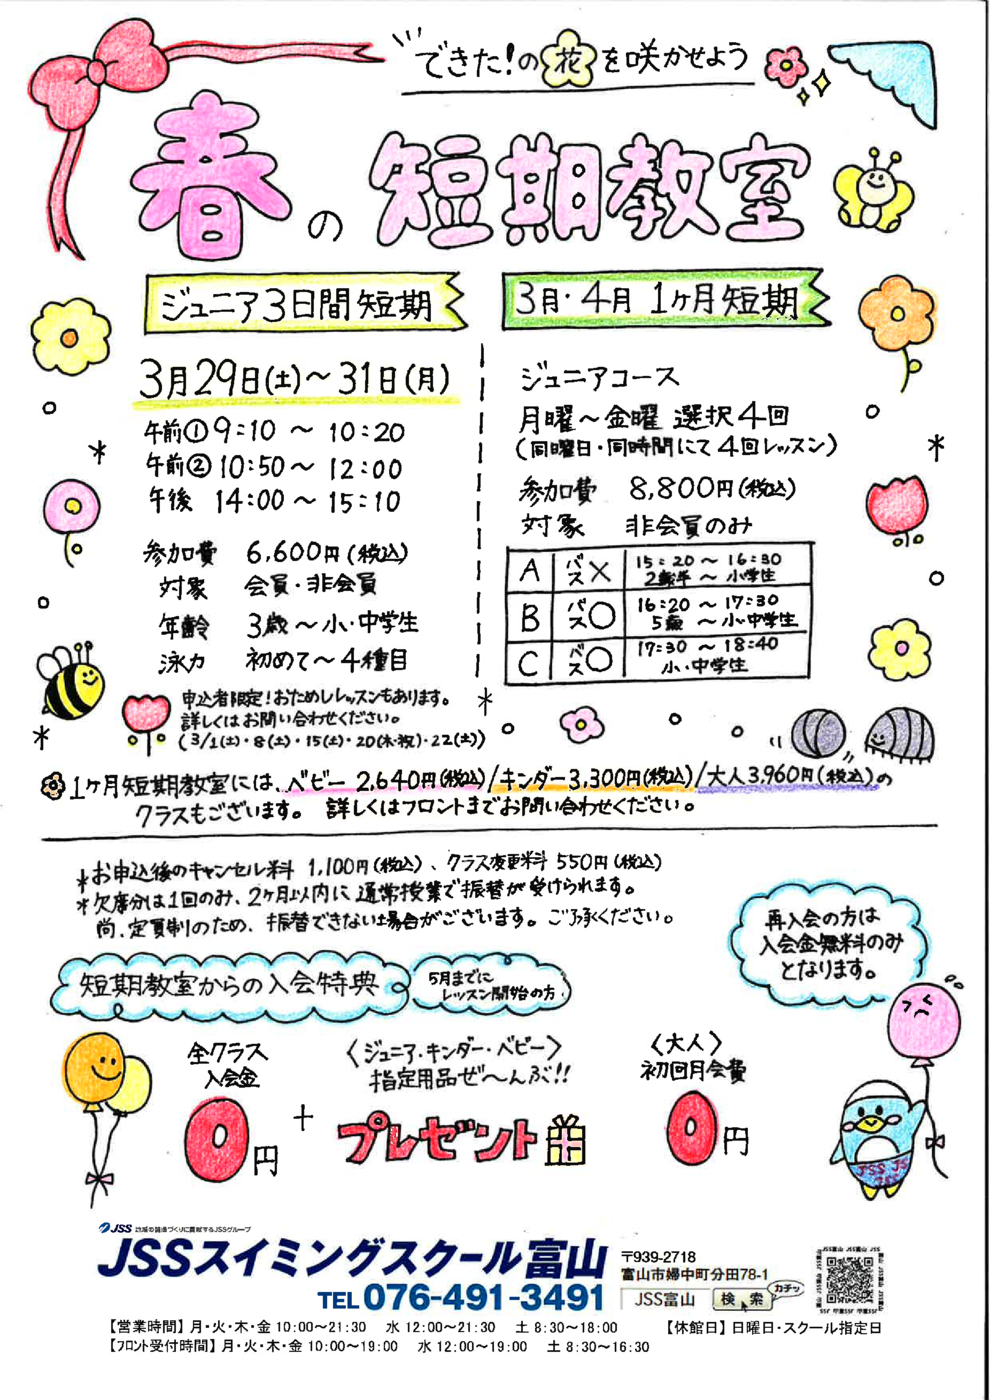 できた!の花を咲かせよう
春の短期教室
ジュニア3日間短期
3月29日(土)～31日(月)
午前① 9:10 ～ 10:20
午前② 10:50～ 12:00
午後 14:00～ 15:10
参加費 6,600円(税込)
対象 会員・非会員
年齢 3歳～小・中学生
泳力 初めて～4種目
申込者限定!おためしレッスンもあります。
詳しくはお問い合わせください。
(3/1(土)・8(土)・15(土)・20(木・祝)・22(土))
3月・4月 1ヶ月短期
ジュニアコース
月曜～金曜 選択4回
(同曜日・同時間にて4回レッスン)
参加費 8,800円(税込)
対象 非会員のみ
A バス× 15:20 ～ 16:30
2歳半 ～ 小学生
B バス○ 16:20 ～ 17:30
5歳 ～小・中学生
C バス○ 17:30 ～ 18:40
小・中学生
1ヶ月短期教室には、ベビー2,640円(税込)/キンダー3,300円(税込)/大人3,960円(税込)の
クラスもございます。 詳しくはフロントまでお問い合わせください。
*お申込後のキャンセル料 1,100円(税込)、クラス変更料 550円(税込)
*欠席分は1回のみ、2ヶ月以内に通常授業で振替が受けられます。
尚、定員制のため、振替できない場合がございます。ご了承ください。
再入会の方は
入会金無料のみ
となります。
短期教室からの入会特典
5月までに
レッスン開始の方
全クラス
入会金
0円
+
〈ジュニア・キンダー・ベビー〉
指定用品ぜ～んぶ!!
プレゼント
〈大人〉
初回月会費
0円
JSS JS
JSS
JSS 地域の健康づくりに貢献するJSSグループ
JSSスイミングスクール富山
TEL 076-491-3491
〒939-2718
富山市婦中町分田78-1
JSS富山 検索
カチッ
JSS富山 JSS富山 JSS
【営業時間】月・火・木・金 10:00～21:30 水 12:00～21:30 土 8:30～18:00 【休館日】日曜日・スクール指定日
【フロント受付時間】月・火・木・金 10:00～19:00 水 12:00～19:00 土 8:30～16:30